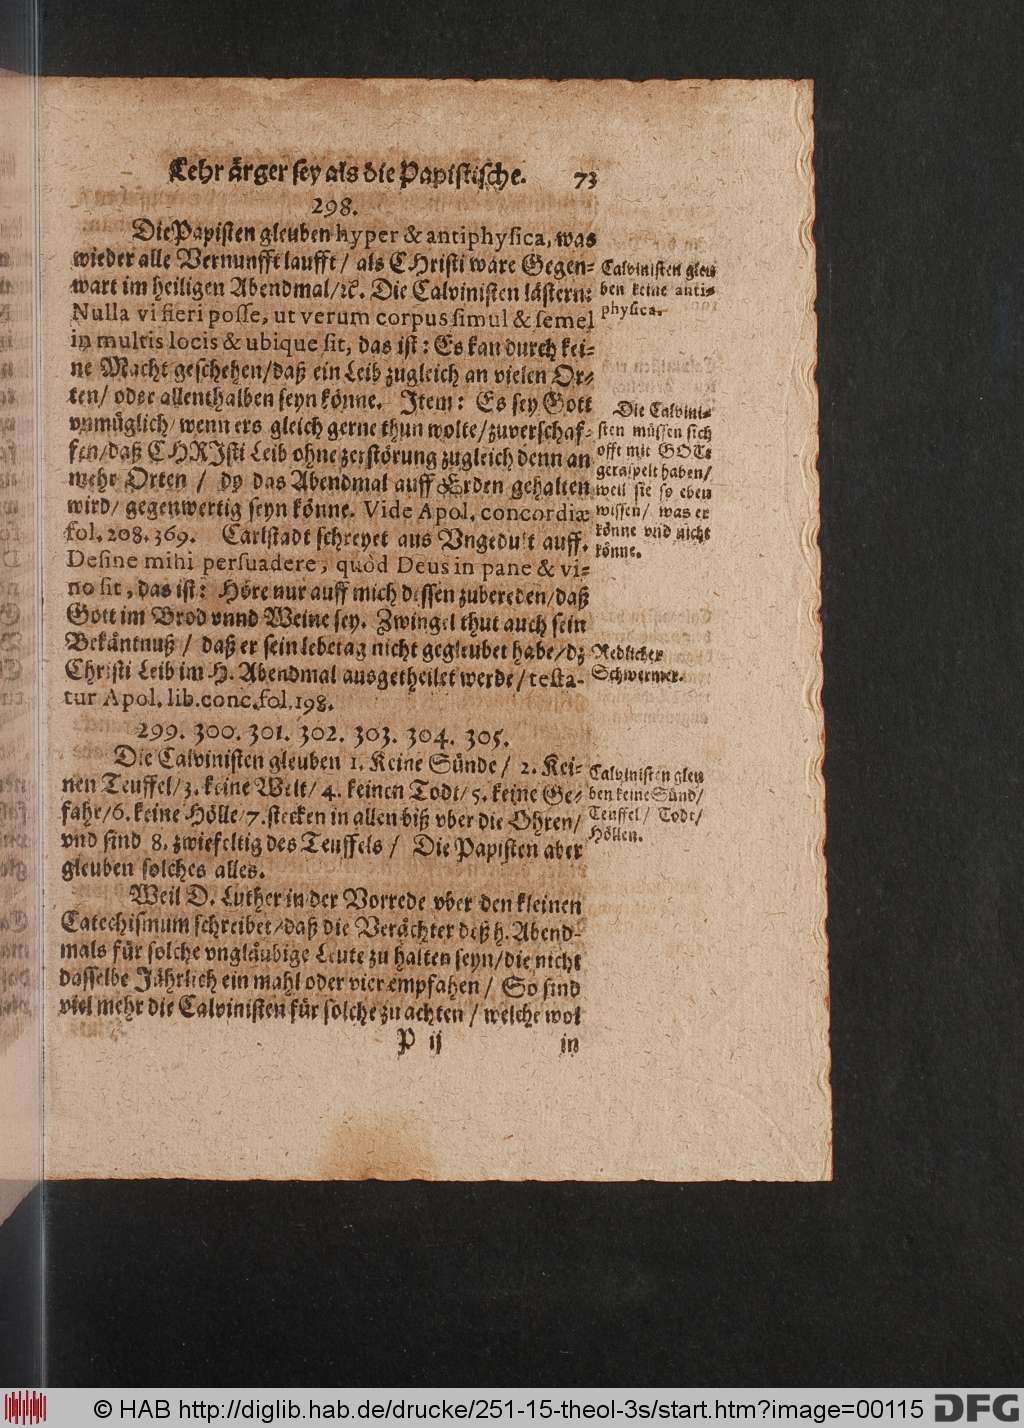 Lehr ärger sey als die Papistische. 73
298.
Die Papisten gleuben hyper & antiphysica, was
wieder alle Vernunfft laufft / als CHristi ware Gegen-
wart im heiligen Abendmal / ꝛc. Die Calvinisten lästern:
Nulla vi fieri posse, ut verum corpus simul & semel
in multis locis & ubique sit, das ist: Es kan durch kei-
ne Macht geschehen / daß ein Leib zugleich an vielen Or-
ten / oder allenthalben seyn könne. Item: Es sey Gott
vnmüglich / wenn ers gleich gerne thun wolte / zuverschaf-
fen / daß CHRIsti Leib ohne zerstörung zugleich denn an
mehr Orten / da das Abendmal auff Erden gehalten
wird / gegenwertig seyn könne. Vide Apol. concordiæ
fol. 208. 369. Carlstadt schreyet aus Vngedult auff.
Desine mihi persuadere, quòd Deus in pane & vi-
no sit, das ist: Höre nur auff mich dessen zubereden / daß
Gott im Brod vnnd Weine sey. Zwingel thut auch sein
Bekäntnuß / daß er sein lebetag nicht gegleubet habe / dz
Christi Leib im H. Abendmal ausgetheilet werde / testa-
tur Apol. lib. conc. fol. 198.
299. 300. 301. 302. 303. 304. 305.
Die Calvinisten gleuben 1. Keine Sünde / 2. Kei-
nen Teuffel / 3. keine Welt / 4. keinen Todt / 5. keine Ge-
fahr / 6. keine Hölle / 7. stecken in allen biß vber die Ohren /
vnd sind 8. zwiefeltig des Teuffels / Die Papisten aber
gleuben solches alles.
Weil D. Luther in der Vorrede vber den kleinen
Catechismum schreibet / daß die Verächter deß h. Abend-
mals für solche vngläubige Leute zu halten seyn / die nicht
dasselbe Jährlich ein mahl oder vier empfahen / So sind
viel mehr die Calvinisten für solche zu achten / welche wol
P ij in
Calvinisten gleu
ben keine anti-
physica.
Die Calvini-
sten müssen sich
offt mit GOTt
geraspelt haben /
weil sie so eben
wissen / was er
könne vnd nicht
könne.
Redlicher
Schwermer.
Calvinisten gleu
ben keine Sünd /
Teuffel / Todt /
Höllen.
© HAB http://diglib.hab.de/drucke/251-15-theol-3s/start.htm?image=00115
DFG